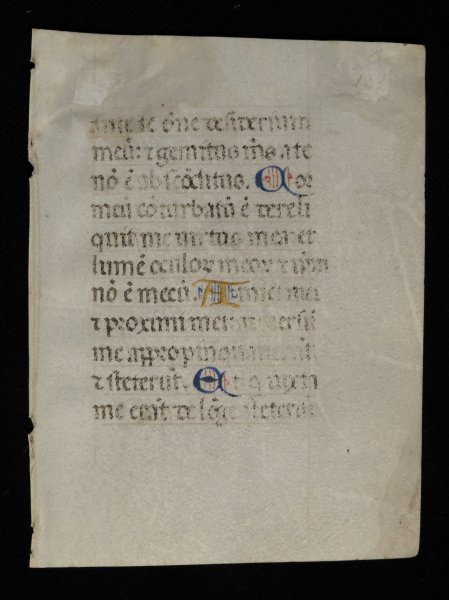 ante te õne desiderium
meũ: ⁊ gemitus m̃s a te
nõ ẽ abscõditus. Cor
meũ cõturbatũ ẽ dereli
quit me uirtus mea: et
lumẽ oculoꝝ meoꝝ ⁊ ip̃m
nõ ẽ mecũ. Amici mei
⁊ proximi mei aduersũ
me appropinquauerũt
⁊ steterũt. Et q̇ iuxta
me erãt de lõge steterũt